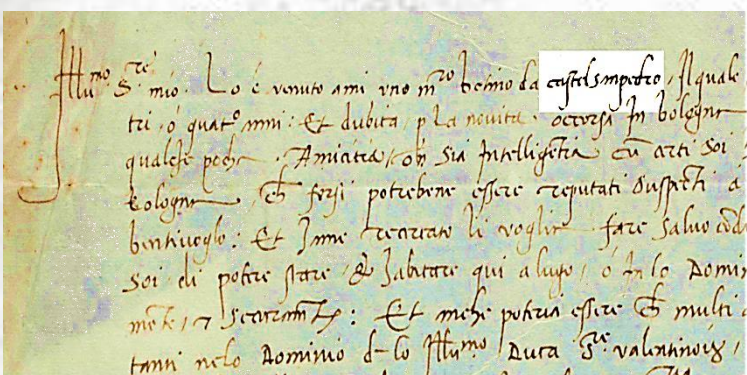 Illu.mo S.re mio. Lo è venuto ami uno m.ro betino da castelsmpedro, Il quale
tri, o quat.o anni: Et dubita p la novita occorsa In bologna
qualche poche Amicitia, con Sia Intelligetia cu certi Soi
bologna, Ch forsi potrebene essere reputati Suspecti a
bentivoglo: Et Inne recercato li voglia fare Salvo cōdu
Soi, di potere stare, & habitare qui a lugo, o In lo Domin
mēte, 7 Securamte: Et anche potria essere Ch multi
tanti nelo Dominio de lo Illu.mo Duca S.re valentinois,